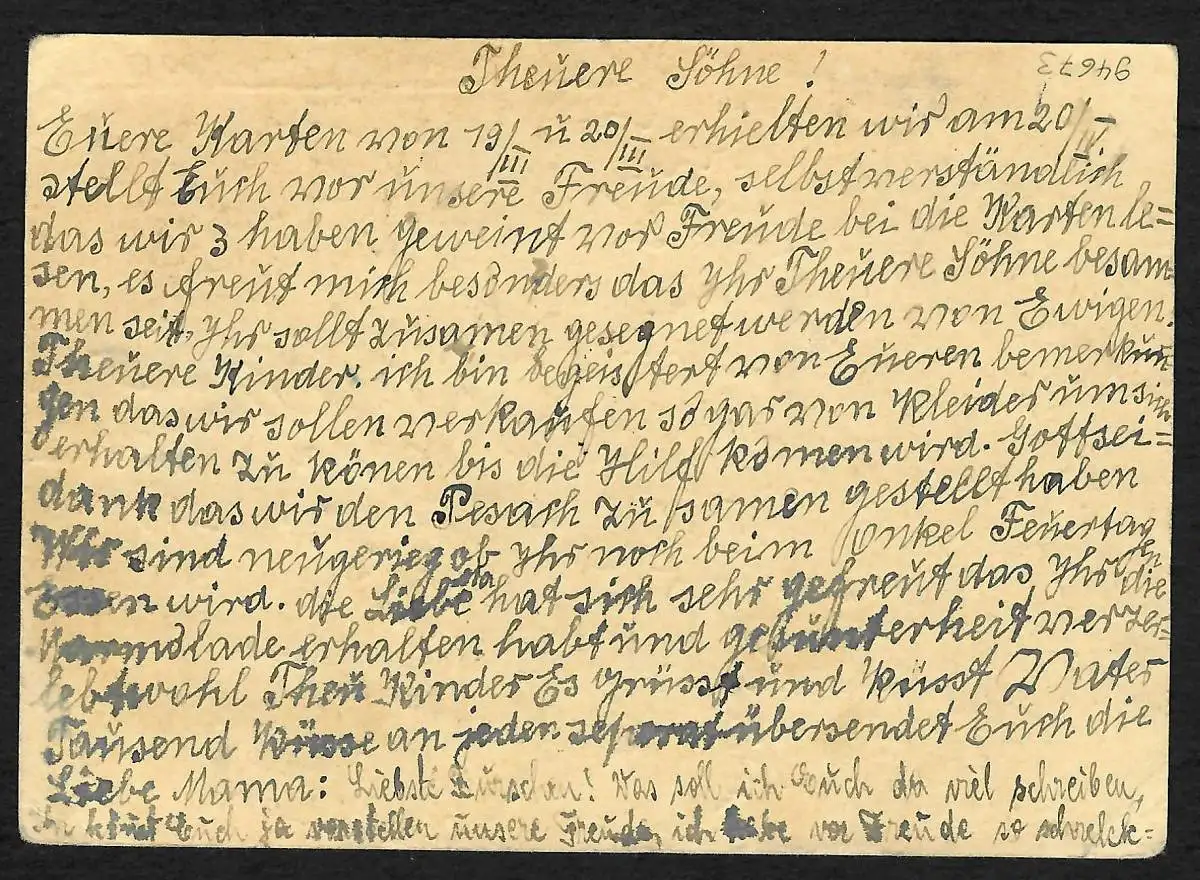 94673
Theuere Söhne!
Euere Karten von 19/III u 20/III erhielten wir am 20/IV.
stellt Euch vor unsere Freude, selbstverständlich
das wir 3 haben geweint vor Freude bei die Karten le=
sen, es freut mich besonders das Yhr Theuere Söhne besam-
men seit, Yhr sollt zusamen gesegnet werden von Ewigen.
Theuere Kinder. ich bin begeistert von Eueren bemerkun
gen das wir sollen verkaufen sogar von Kleider um sich
erhalten zu könen bis die Hilf komen wird. Gottsei=
dank das wir den Pesach zusamen gestellt haben
Wir sind neugerieg ob Yhr noch beim Onkel Feuertag
wird. die Liebe hat sich sehr gefreut das Yhr die
erhalten habt und verzer=
lebtwohl Theu Kinder Es Grüsst und küsst Vater
Tausend Küsse an jeden separat übersendet Euch die
Liebe Mama: Liebste Burschen! Was soll ich Euch da viel schreiben,
Euch ja vorstellen unsere Freude, ich habe vor Freude so